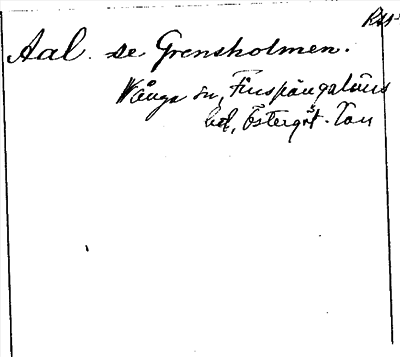 Aal. se Grensholmen.
Vånga sn, Finspångaläns
hd, Östergöt. län